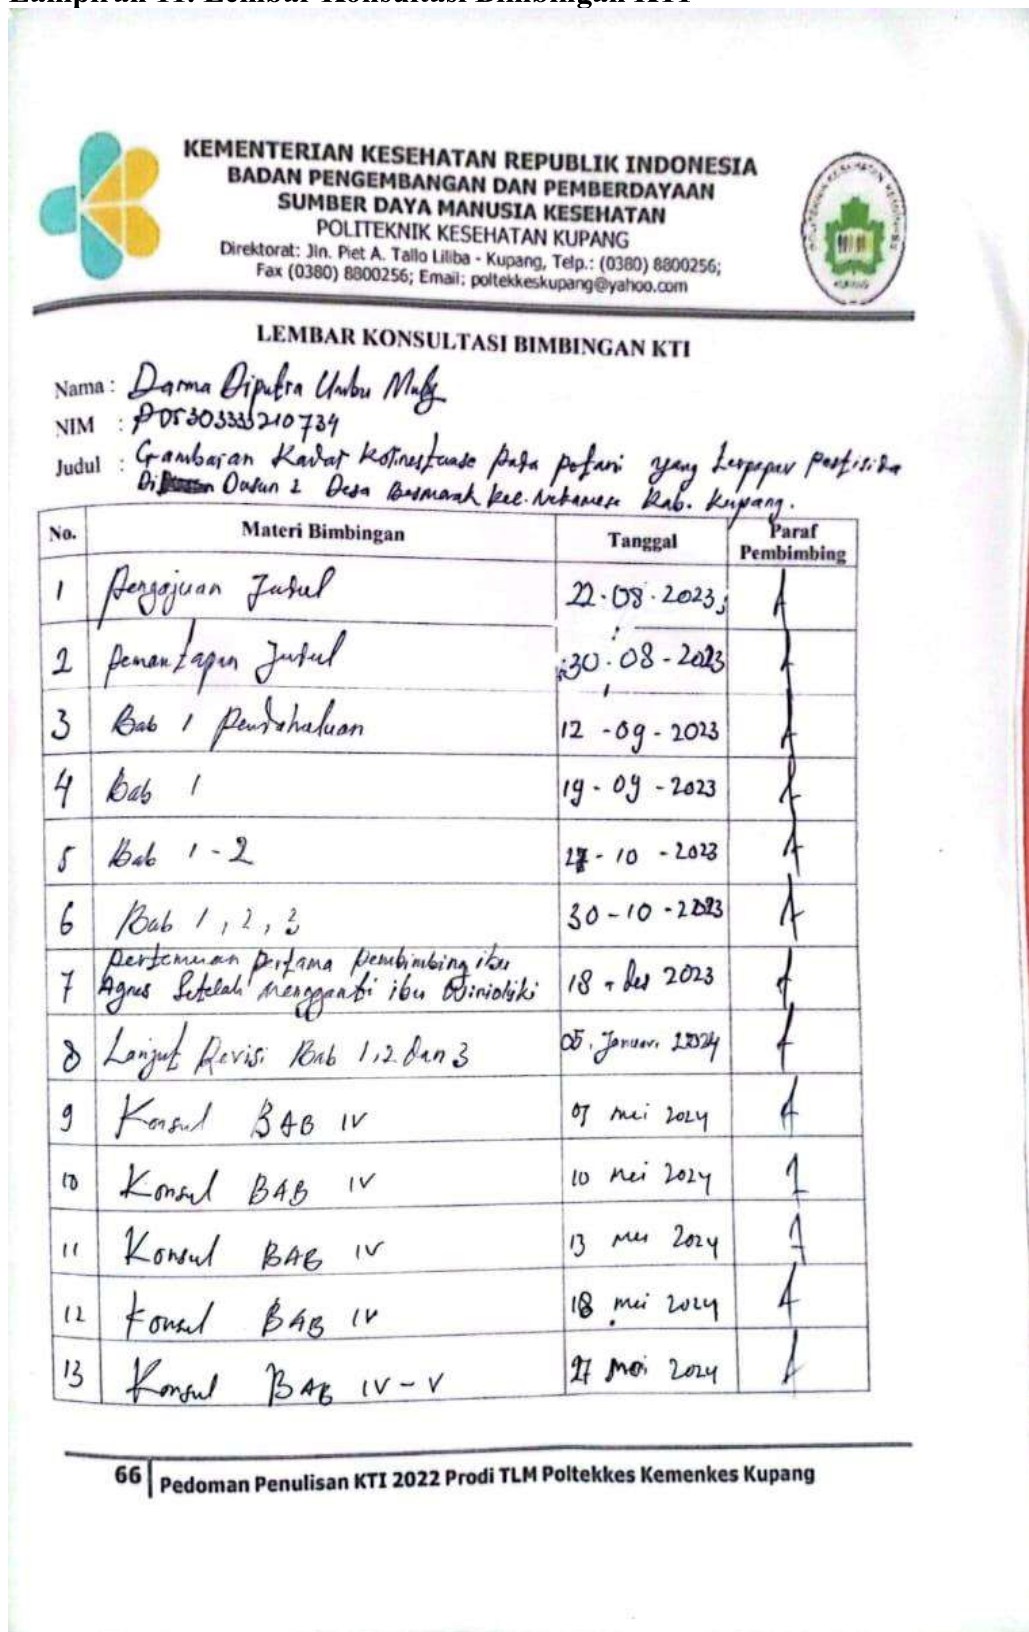 Lampiran 11. Lembar Konsultasi Bimbingan KTI
KEMENTERIAN KESEHATAN REPUBLIK INDONESIA
BADAN PENGEMBANGAN DAN PEMBERDAYAAN
SUMBER DAYA MANUSIA KESEHATAN
POLITEKNIK KESEHATAN KUPANG
Direktorat: Jln. Piet A. Tallo Liliba - Kupang, Telp.: (0380) 8800256;
Fax (0380) 8800256; Email: poltekkeskupang@yahoo.com
LEMBAR KONSULTASI BIMBINGAN KTI
Nama : Darma Diputra Umbu
NIM : PO5303333210734
Judul : Gambaran Kadar Kolinestrase pada petani yang terpapar pestisida
Di Dusun 2 Desa Besmarak kec. Nekamese Kab. Kupang.
No. Materi Bimbingan Tanggal Paraf Pembimbing
1 Pengajuan Judul 22-08-2023
2 Pemantapan Judul 30-08-2023
3 Bab 1 Pendahuluan 12-09-2023
4 Bab 1 19-09-2023
5 Bab 1-2 -10-2023
6 Bab 1, 2, 3 30-10-2023
7 Pertemuan pertama pembimbing ibu
Agnes Setelah mengganti ibu 18 - des 2023
8 Lanjut Revisi Bab 1,2 dan 3 05. Januari 2024
9 Konsul BAB IV 07 mei 2024
10 Konsul BAB IV 10 mei 2024
11 Konsul BAB IV 13 mei 2024
12 Konsul BAB IV 18 mei 2024
13 Konsul BAB IV-V 27 mei 2024
66 Pedoman Penulisan KTI 2022 Prodi TLM Poltekkes Kemenkes Kupang